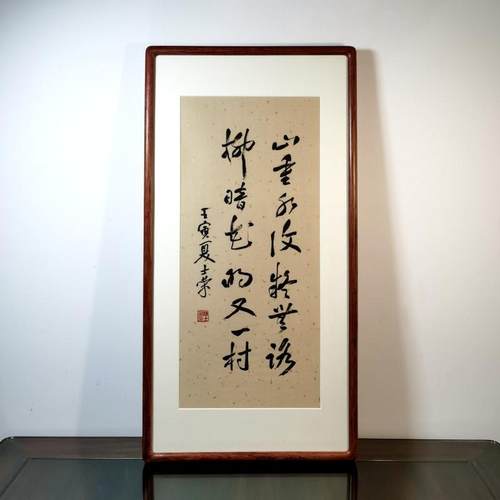 山重水復疑無路
柳暗花明又一村
壬寅夏士荣